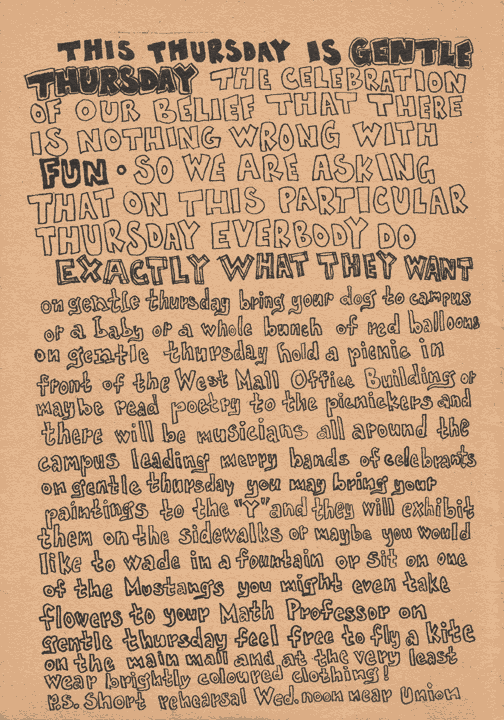 THIS THURSDAY IS GENTLE
THURSDAY THE CELEBRATION
OF OUR BELIEF THAT THERE
IS NOTHING WRONG WITH
FUN • SO WE ARE ASKING
THAT ON THIS PARTICULAR
THURSDAY EVERBODY DO
EXACTLY WHAT THEY WANT
on gentle thursday bring your dog to campus
or a baby or a whole bunch of red balloons
on gentle thursday hold a picnic in
front of the West Mall Office Building or
maybe read poetry to the picnickers and
there will be musicians all around the
campus leading merry bands of celebrants
on gentle thursday you may bring your
paintings to the "Y" and they will exhibit
them on the sidewalks or maybe you would
like to wade in a fountain or sit on one
of the Mustangs you might even take
flowers to your Math Professor on
gentle thursday feel free to fly a kite
on the main mall and at the very least
wear brightly coloured clothing!
P.S. Short rehearsal Wed. noon near Union